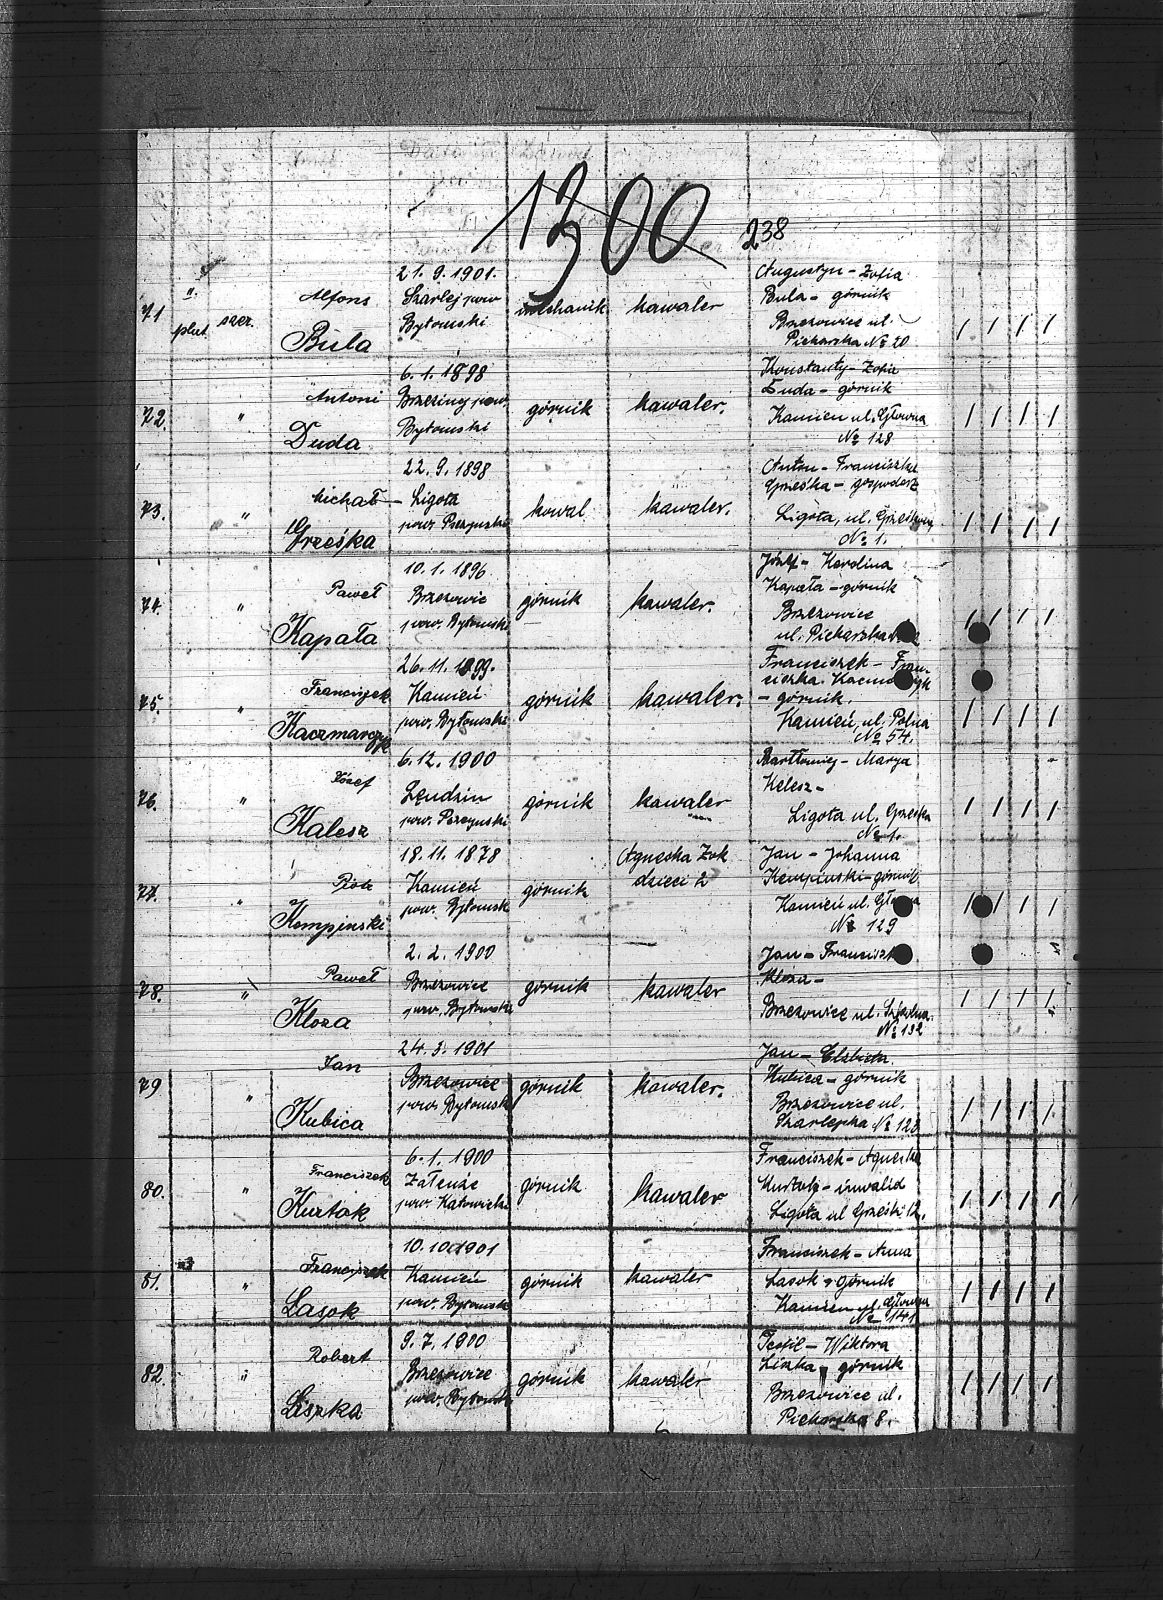 1300
238
71 II. plut. szer. Alfons Bula 21.9.1901. Szarlej pow Bytomski mechanik kawaler Augustyn - Zofia
Bula - górnik
Brzezowice ul.
Piekarska № 20
72. " Antoni Duda 6.1.1898 Brzeziny pow. Bytomski górnik kawaler. Konstanty - Zofia
Duda - górnik
Kamien ul. Głowna
№ 128
73. " Michał Grześka 22.9.1898 Ligota pow. kowal kawaler. Anton - Franciszka
Grześka - gospodarz
Ligota, ul.
№ 1.
74. " Paweł Kapała 10.1.1896 Brzezowic pow. Bytomski górnik kawaler. Józef - Karolina
Kapała - górnik
Brzezowice
ul. Piekarska
75. " Franciszek Kaczmarczyk 26.11.1899. Kamień pow. Bytomski górnik kawaler. Franciszek - Fran-
ciszka
- górnik.
Kamień, ul. Polna
№ 54.
76. " Józef Kalesz 6.12.1900 Lendzin pow. górnik kawaler Bartłomiej - Marya
Kelesz -
Ligota ul. Grzeska
№ 1.
77. " Piotr Kempinski 18.11.1878 Kamień pow. Bytomsk górnik Agneska Żok dzieci 2 Jan - Johanna
Kempinski - górnik
Kamień ul.
№ 129
78. " Paweł Kloza 2.2.1900 Brzezowice pow. Bytomski górnik kawaler Jan -
Kloza -
Brzezowice ul. Szkolna.
№ 132
79 " Jan Kubica 24.3.1901 Brzezowice pow. Bytomsk górnik kawaler. Jan - Elzbieta.
Kubica - górnik
Brzezowice ul.
№
80. " Franciszek Kurtok 6.1.1900 Załenże pow. Katowicki górnik kawaler Franciszek - Agneska
Kurtok - inwalid
Ligota ul Grześki 12.
81. " Franciszek Lasok 10.10.1901 Kamień pow. Bytomski górnik kawaler Franciszek - Anna
Lasok - górnik
Kamien ul. Głowna
№ 141
82. " Robert Liszka 9.7.1900 Brzezowice pow. Bytomski górnik kawaler Teofil - Wiktora
Liszka - górnik
Brzezowice ul.
Piekarska 8.